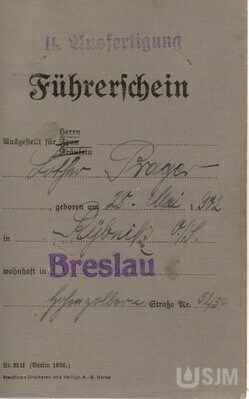 II. Ausfertigung
Führerschein
Herrn
Ausgestellt für Frau
Fräulein
Lothar Prager
geboren am 28. Mai 1902
in Rybnik O/S.
wohnhaft in Breslau
Hohenzollern Straße Nr. 52/54
Nr. 2311 (Berlin 1936.)
Preußische Druckerei- und Verlags-A.-G. Berlin
USJM